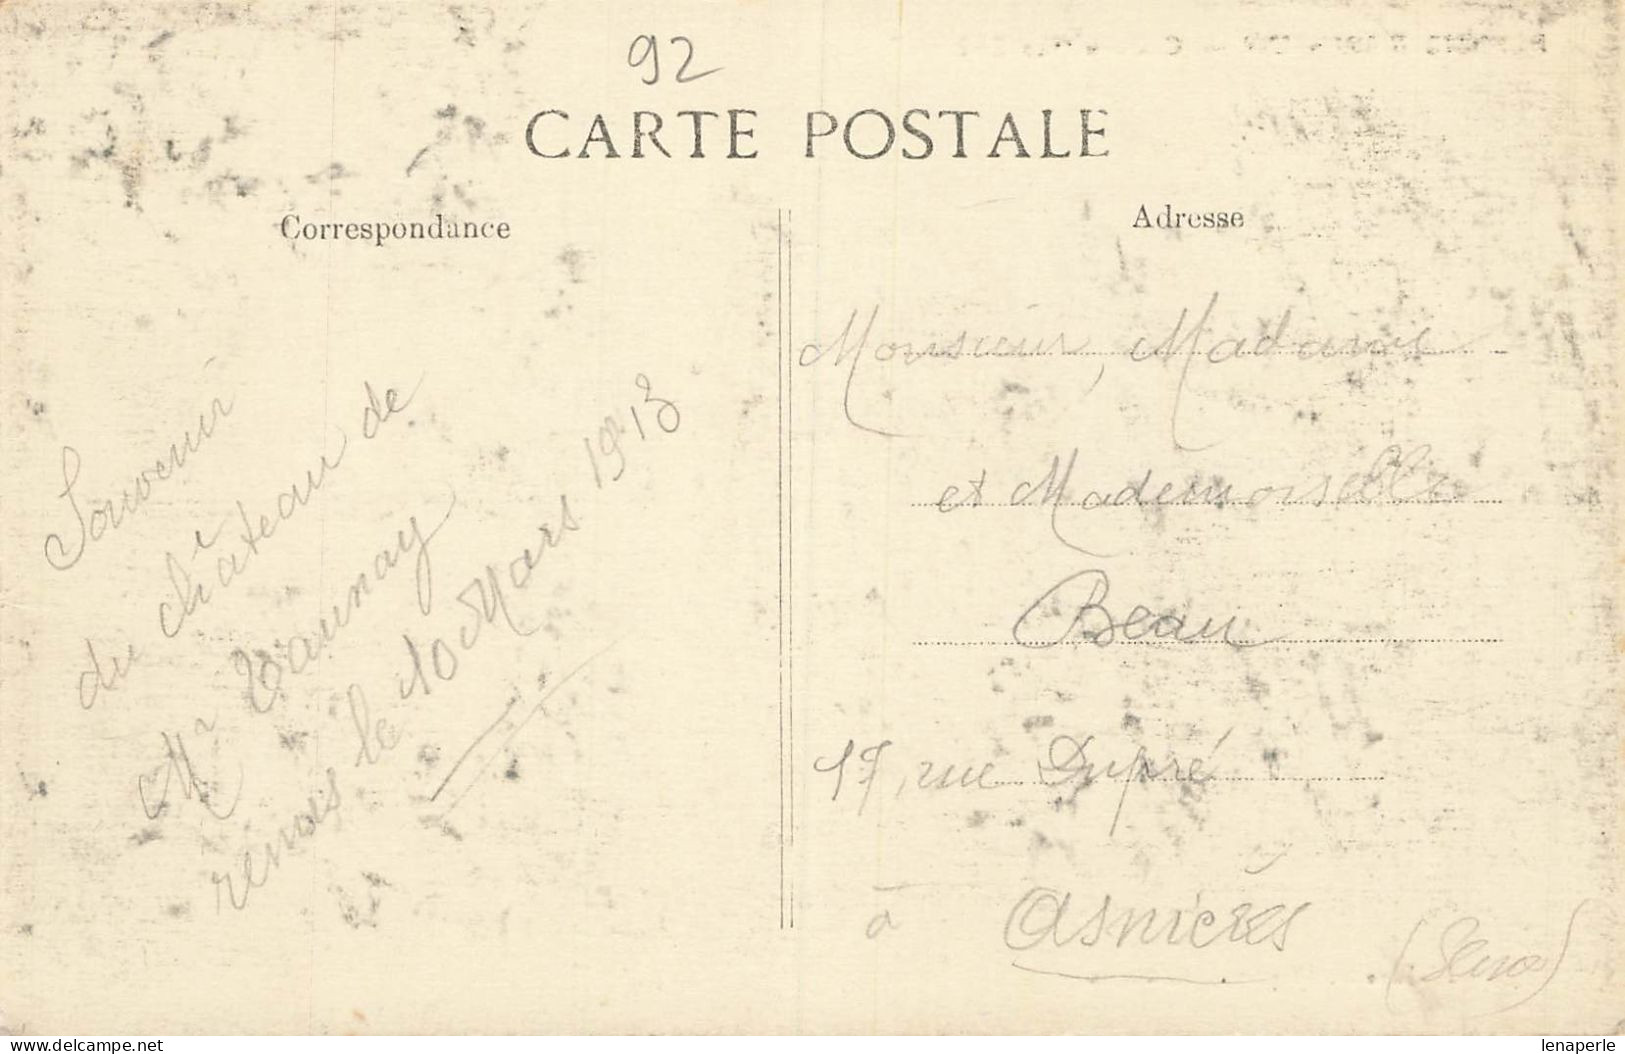 92
CARTE POSTALE
Correspondance
Adresse
Souvenir
du château de
Mr Launay
remis le 10 Mars 1913
Monsieur, Madame
et Mademoiselle
Beau
17, rue Dupré
à Asnières (Seine)
delcampe.net
lenaperle